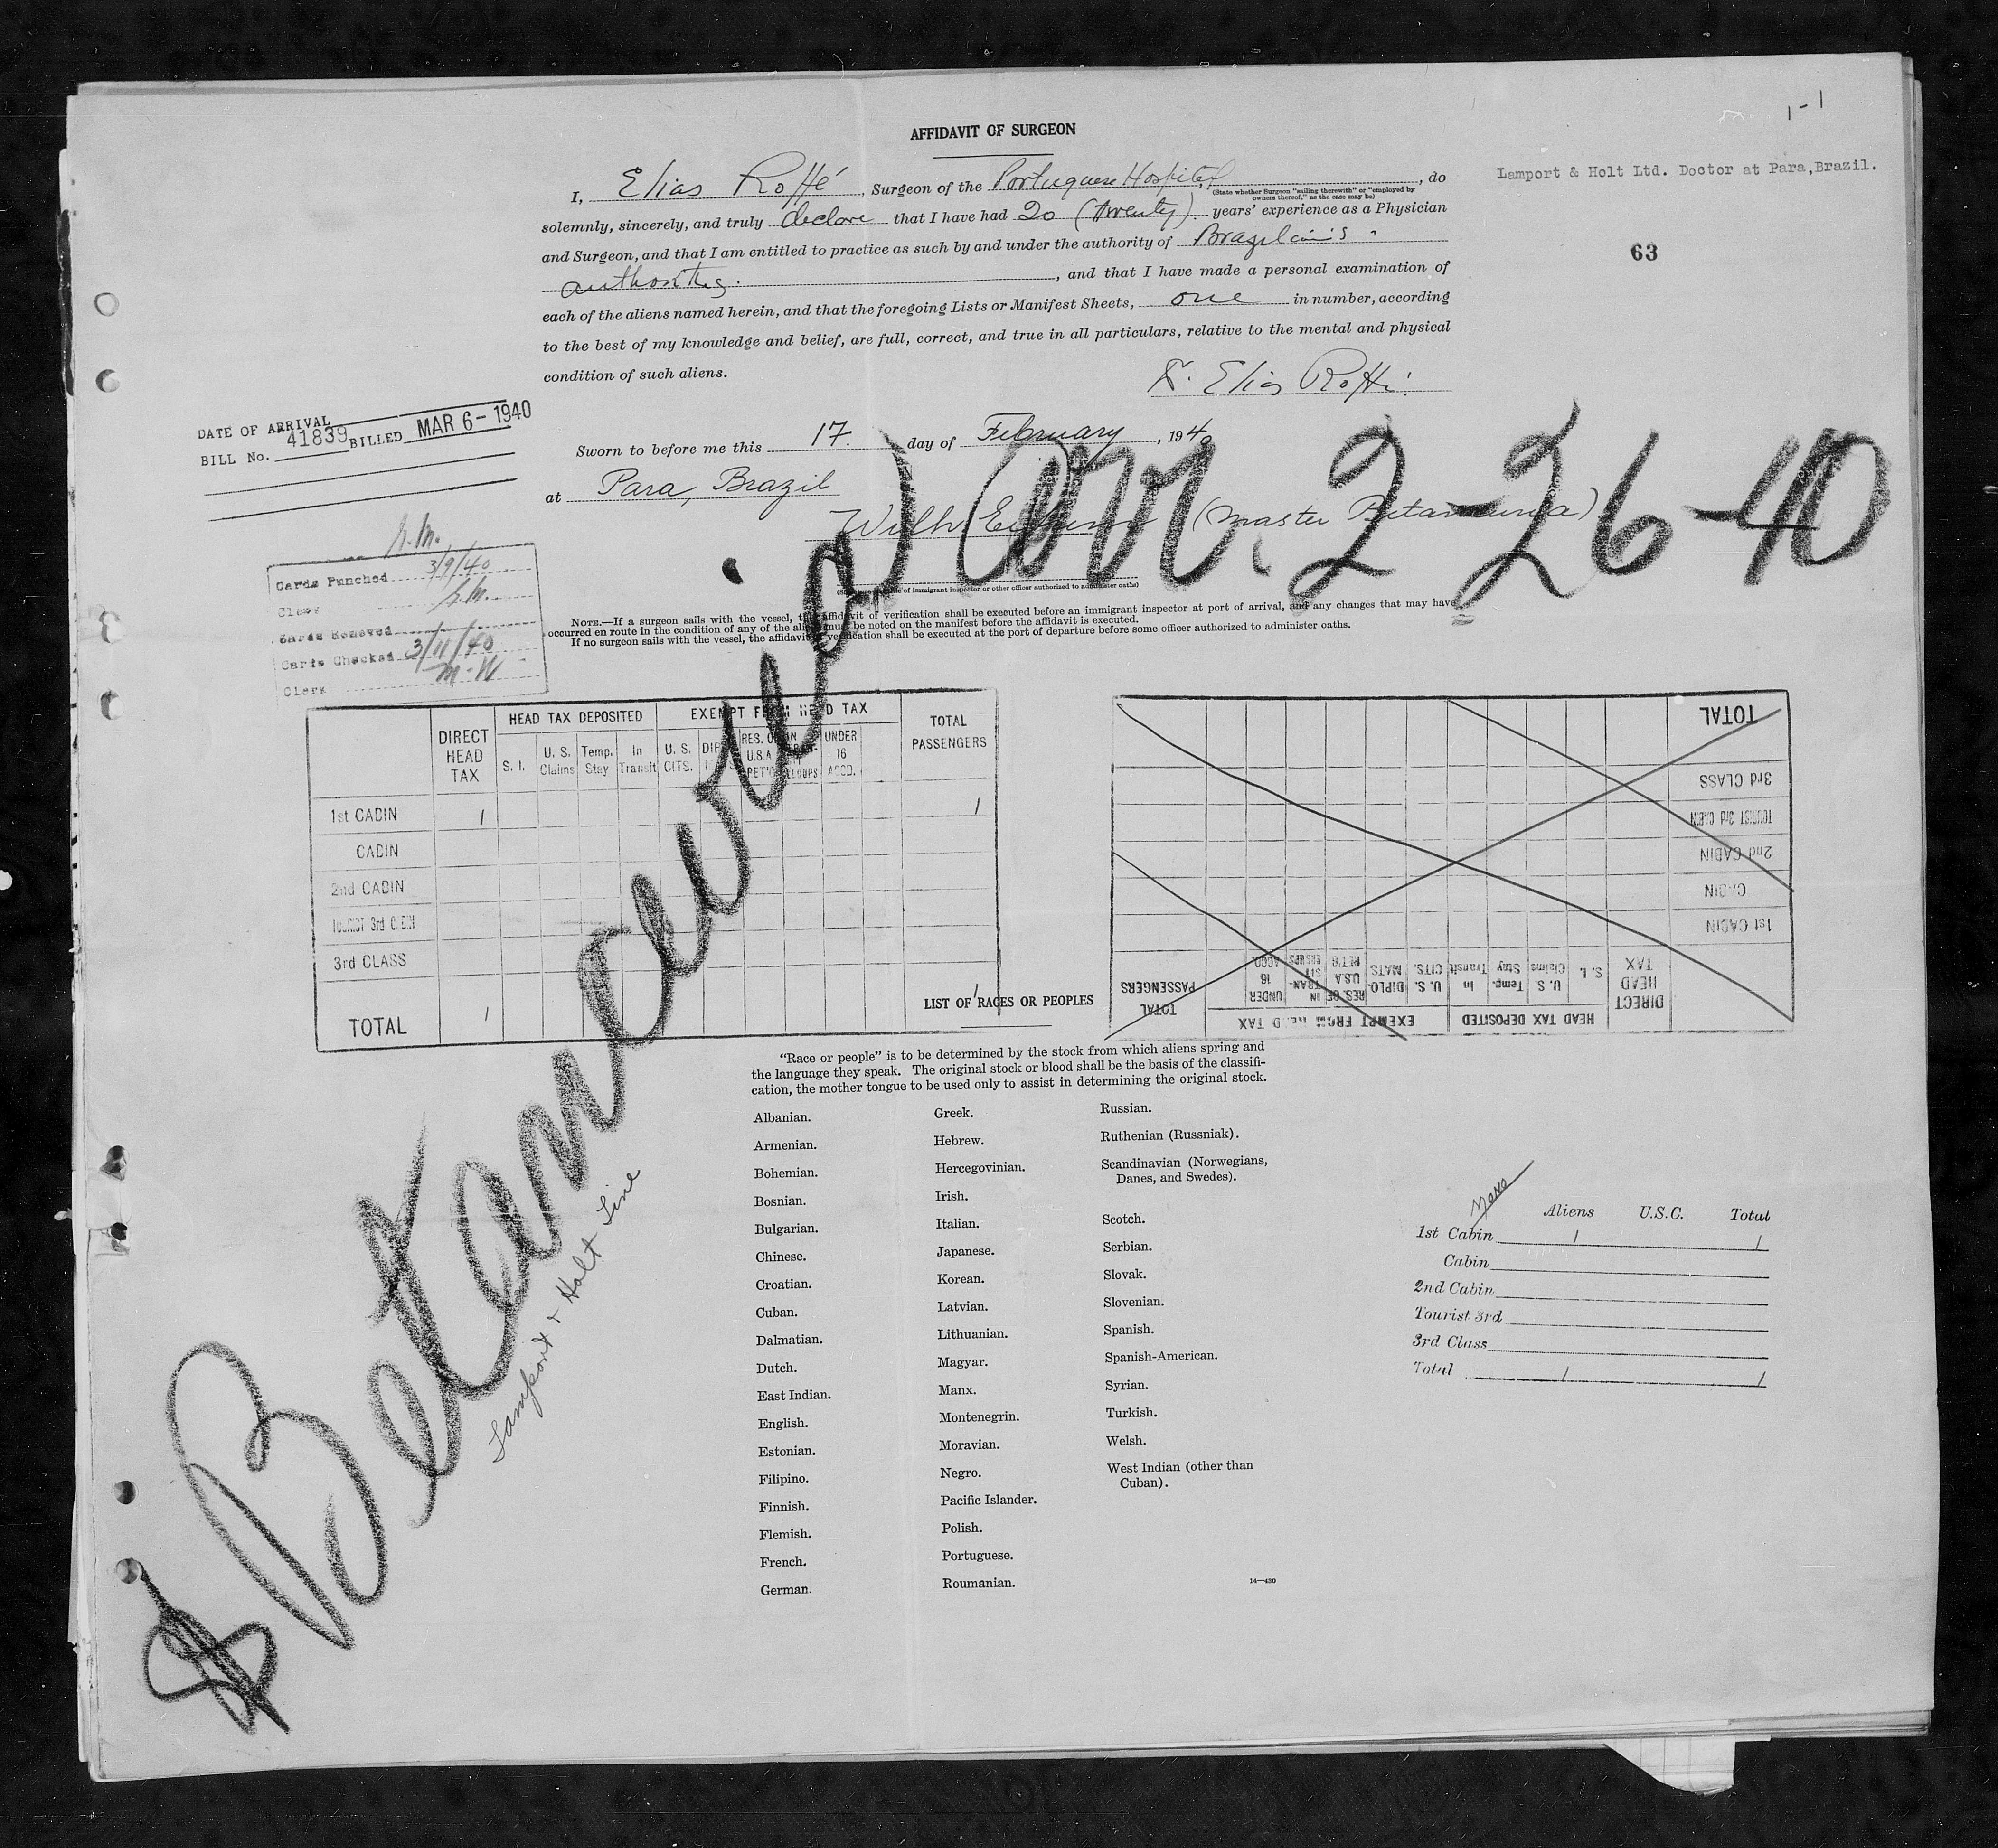 1-1
AFFIDAVIT OF SURGEON
I, Elias Roffé, Surgeon of the Portuguese Hospital, do
(State whether Surgeon "sailing therewith" or "employed by
owners thereof," as the case may be)
Lamport & Holt Ltd. Doctor at Para, Brazil.
solemnly, sincerely, and truly declare that I have had 20 (twenty) years' experience as a Physician
and Surgeon, and that I am entitled to practice as such by and under the authority of
63
authorities., and that I have made a personal examination of
each of the aliens named herein, and that the foregoing Lists or Manifest Sheets, one in number, according
to the best of my knowledge and belief, are full, correct, and true in all particulars, relative to the mental and physical
condition of such aliens.
Elias Roffé
DATE OF ARRIVAL
BILL No. 41839 BILLED MAR 6-1940
Sworn to before me this 17. day of February, 1940
at Para, Brazil
Wilh (Master
Arr. 2-26-40
Cards Punched 3/9/40
Clerk
Cards Removed
Cards Checked 3/11/40
Clerk M.W
of immigrant inspector or other officer authorized to administer oaths)
NOTE.—If a surgeon sails with the vessel, the affidavit of verification shall be executed before an immigrant inspector at port of arrival, and any changes that may have
occurred en route in the condition of any of the aliens must be noted on the manifest before the affidavit is executed.
If no surgeon sails with the vessel, the affidavit of verification shall be executed at the port of departure before some officer authorized to administer oaths.
DIRECT HEAD TAX
HEAD TAX DEPOSITED
S. I.
U. S. Claims
Temp. Stay
In Transit
EXEMPT FROM HEAD TAX
U. S. CITS.
UNDER 16 ACCD.
TOTAL PASSENGERS
1st CABIN 1 1
CABIN
2nd CABIN
TOURIST 3rd CABIN
3rd CLASS
TOTAL 1 1
TOTAL
3rd CLASS
TOURIST 3rd CABIN
2nd CABIN
CABIN
1st CABIN
DIRECT HEAD TAX
HEAD TAX DEPOSITED
S. I.
U. S. Claims
Temp. Stay
In Transit
EXEMPT FROM HEAD TAX
U. S. CITS.
DIPLO- MATS
RES. OF U.S.A RET'G
IN TRAN- SIT GROUPS
UNDER 16 ACCD
TOTAL PASSENGERS
Lamport & Holt Line
LIST OF RACES OR PEOPLES
"Race or people" is to be determined by the stock from which aliens spring and
the language they speak. The original stock or blood shall be the basis of the classifi-
cation, the mother tongue to be used only to assist in determining the original stock.
Albanian.
Armenian.
Bohemian.
Bosnian.
Bulgarian.
Chinese.
Croatian.
Cuban.
Dalmatian.
Dutch.
East Indian.
English.
Estonian.
Filipino.
Finnish.
Flemish.
French.
German.
Greek.
Hebrew.
Hercegovinian.
Irish.
Italian.
Japanese.
Korean.
Latvian.
Lithuanian.
Magyar.
Manx.
Montenegrin.
Moravian.
Negro.
Pacific Islander.
Polish.
Portuguese.
Roumanian.
Russian.
Ruthenian (Russniak).
Scandinavian (Norwegians,
Danes, and Swedes).
Scotch.
Serbian.
Slovak.
Slovenian.
Spanish.
Spanish-American.
Syrian.
Turkish.
Welsh.
West Indian (other than
Cuban).
14—430
Aliens U.S.C. Total
1st Cabin 1 1
Cabin
2nd Cabin
Tourist 3rd
3rd Class
Total 1 1